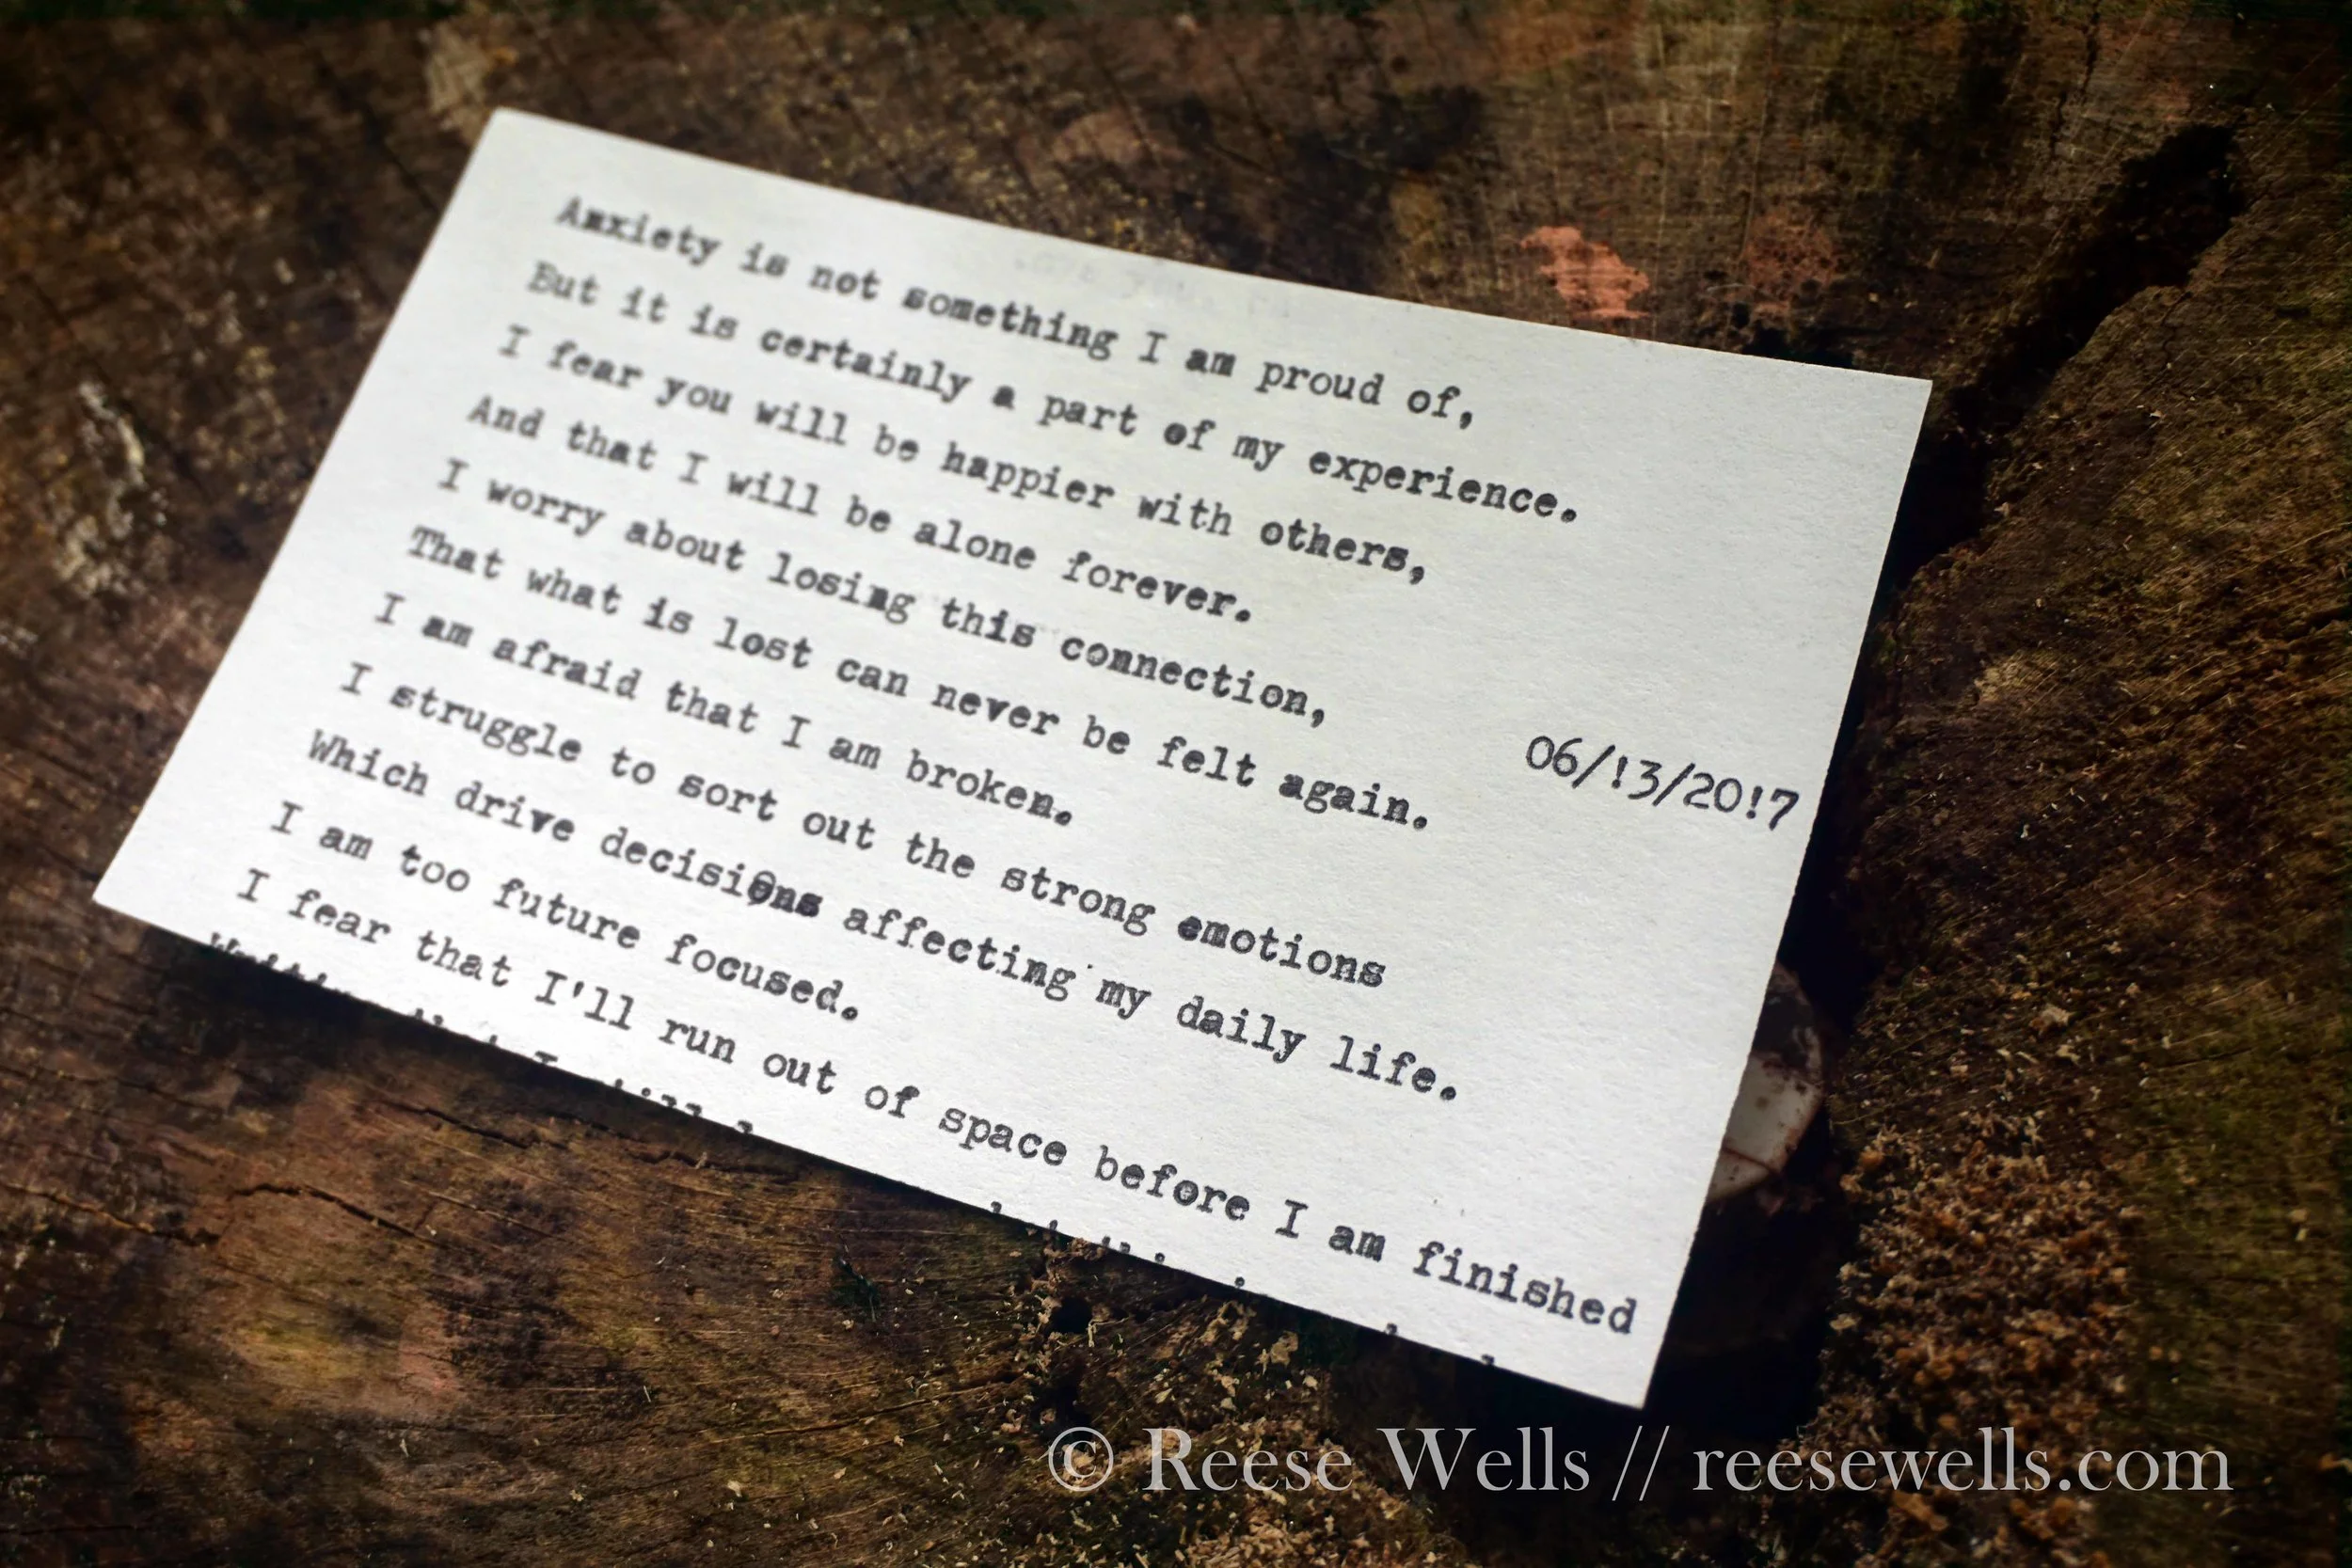 Anxiety is not something I am proud of,
But it is certainly a part of my experience.
I fear you will be happier with others,
And that I will be alone forever.
I worry about losing this connection,
That what is lost can never be felt again.
06/!3/20!7
I am afraid that I am broken.
I struggle to sort out the strong emotions
Which drive decisiOns affecting my daily life.
I am too future focused.
I fear that I'll run out of space before I am finished
© Reese Wells // reesewells.com